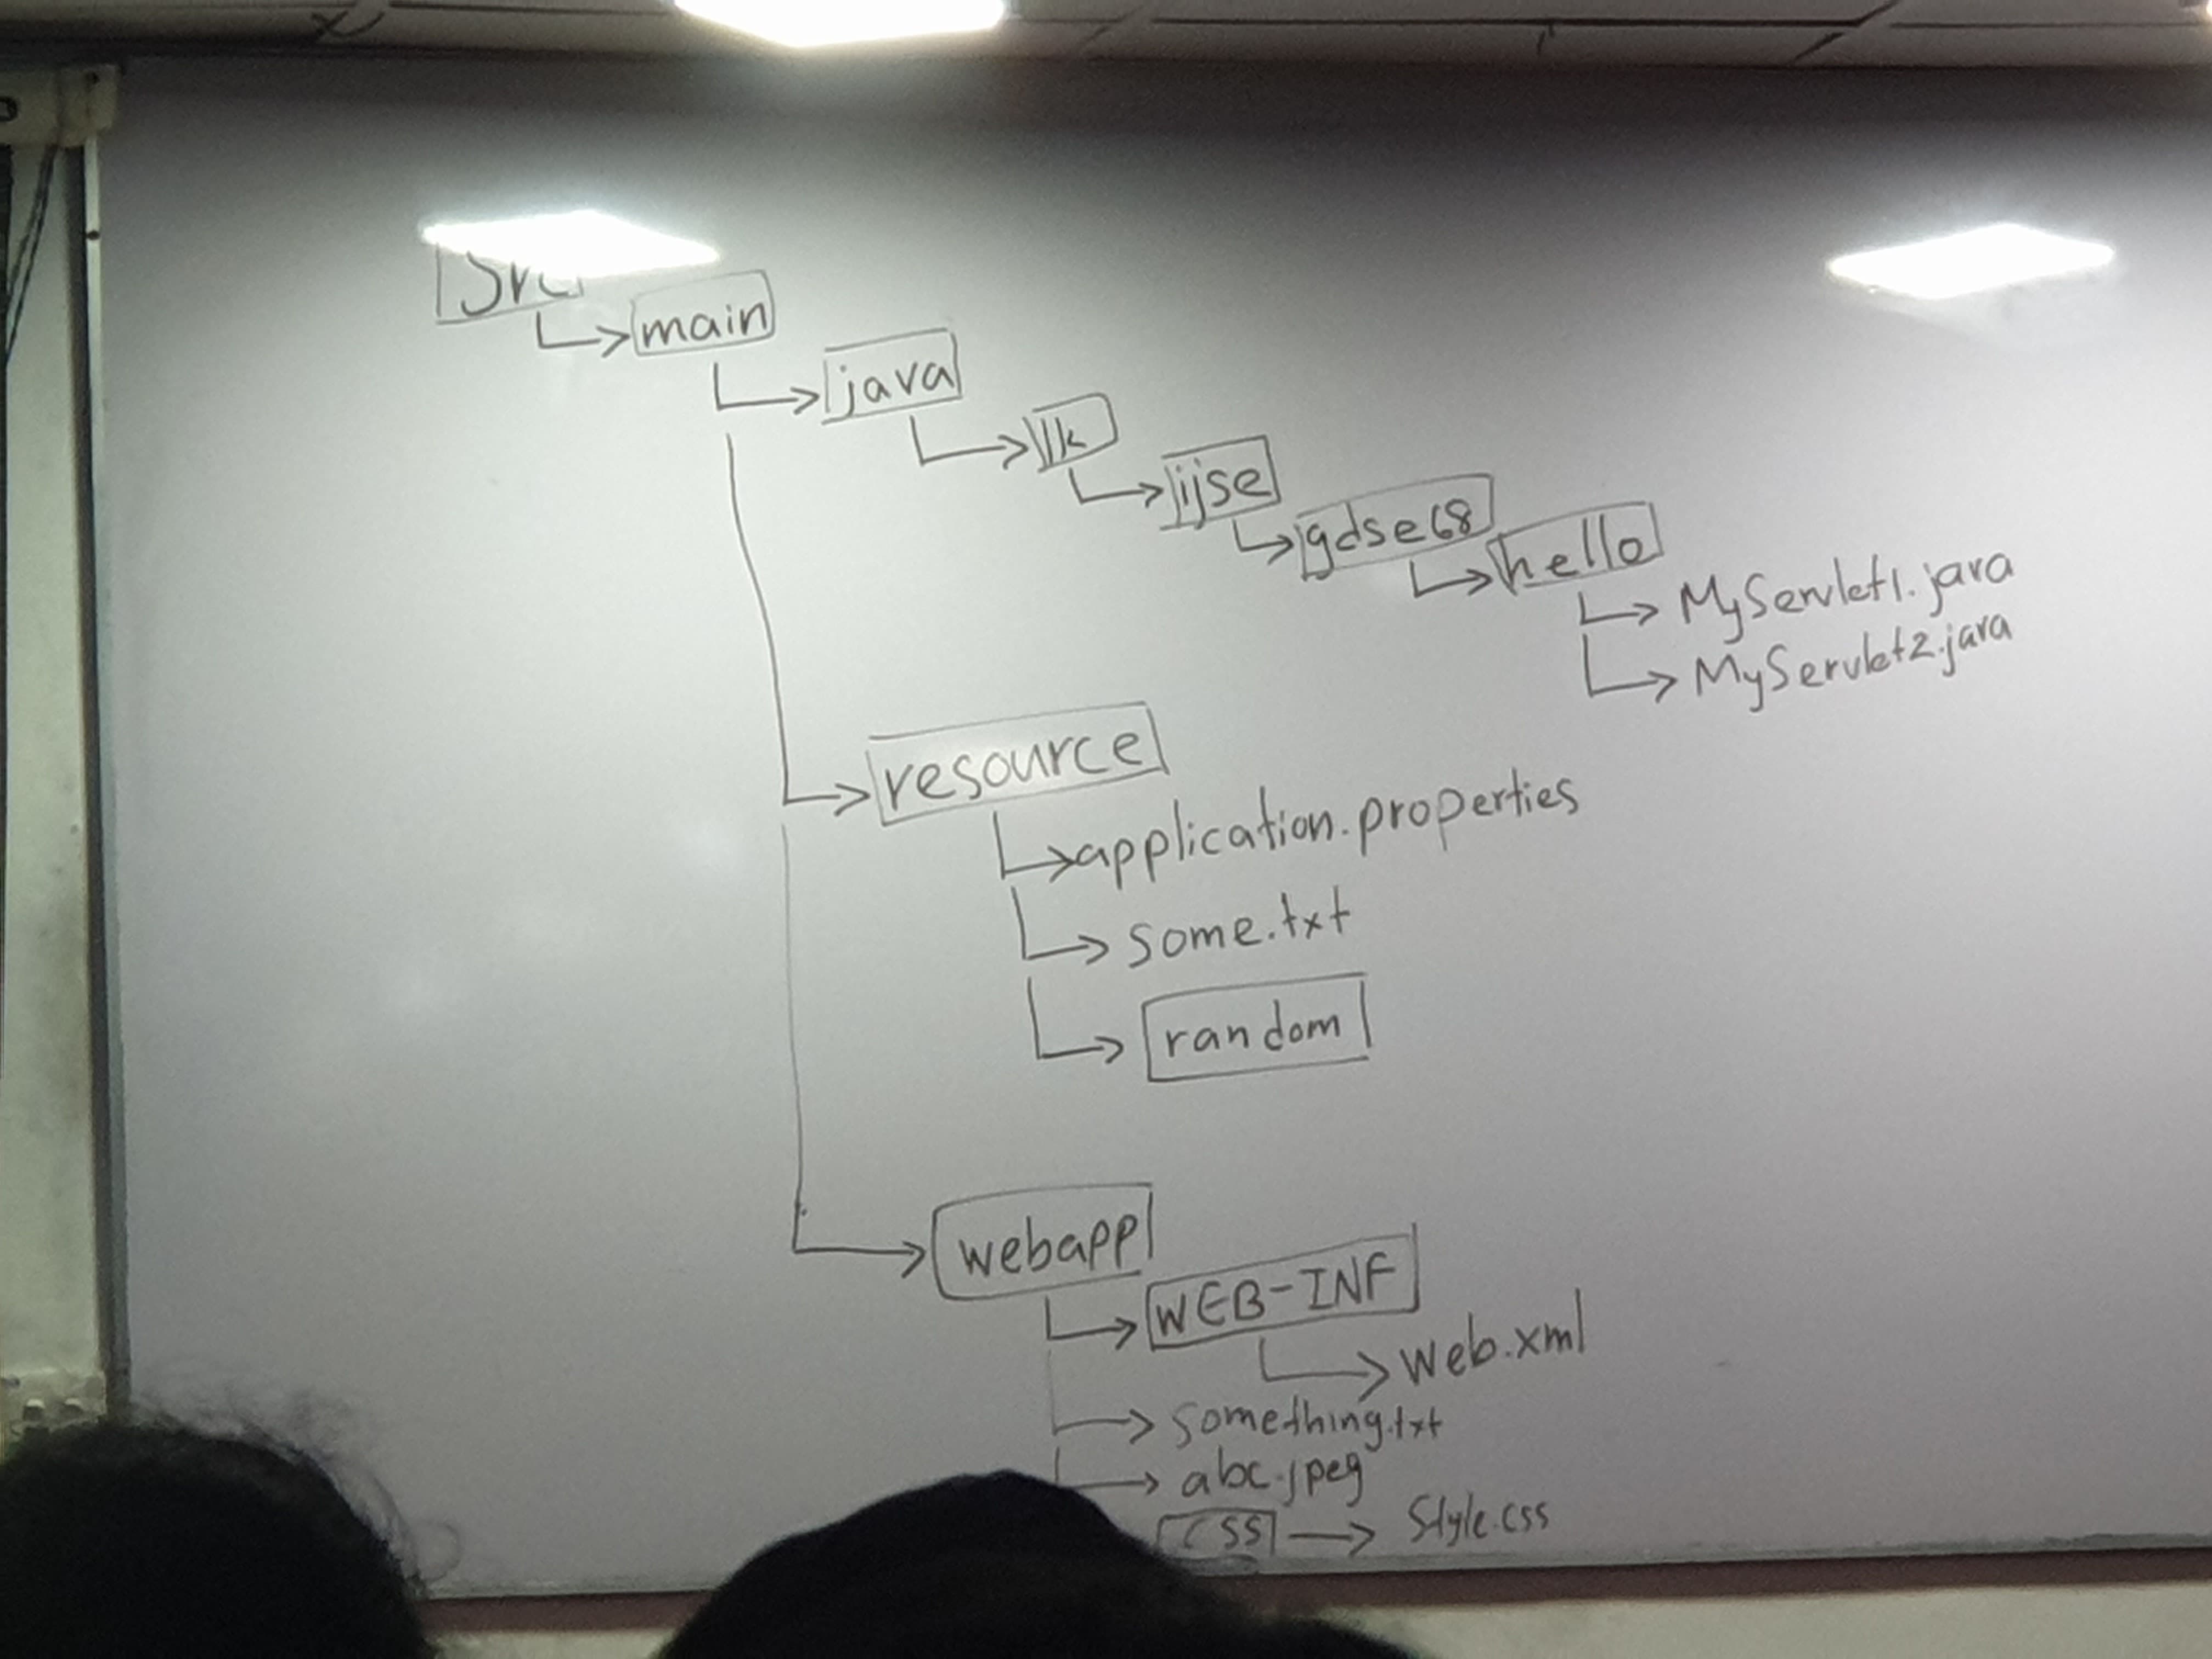 src
main
java
lk
ijse
gdse68
hello
MyServlet1.java
MyServlet2.java
resource
application.properties
some.txt
random
webapp
WEB-INF
web.xml
something.txt
abc.jpeg
css
Style.css